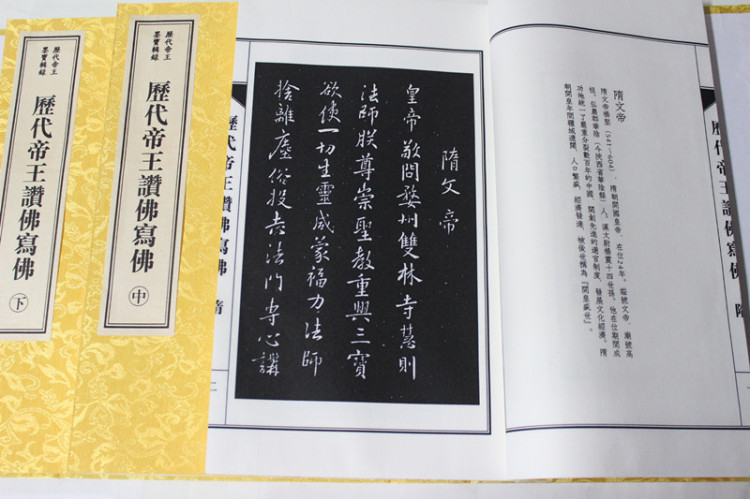 歷代帝王
墨寶輯錄
歷代帝王讚佛寫佛
下
歷代帝王
墨寶輯錄
歷代帝王讚佛寫佛
中
隋文帝
皇帝敬問婺州雙林寺慧則
法師朕尊崇聖教重興三寶
欲使一切生靈咸蒙福力法師
捨離塵俗投志法門專心講
歷代帝王讚佛寫佛
隋
二
隋文帝
隋文帝楊堅（541—604），隋朝開國皇帝，在位24年，謚號文帝，廟號高
祖，弘農郡華陰（今陝西省華陰縣）人。漢太尉楊震十四世孫，他在位期間成
功地統一了嚴重分裂數百年的中國，開創先進的選官制度，發展文化經濟。隋
朝開皇年間疆域遼闊，人口繁盛，經濟發達，被後世稱為『開皇盛世』。
歷代帝王讚佛寫佛
隋